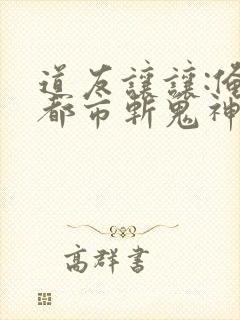 道友讓讓:俺
都市斬鬼神
高群書